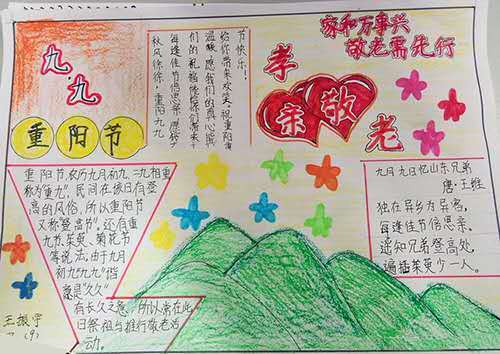 家和万事兴
敬老需先行
九
九
重阳节
秋风徐徐,重阳九九
每逢佳节倍思亲.
温暖.愿我们的真心
给你带来欢笑.祝重阳
节快乐!
孝
亲 敬
老
重阳节,农历九月初九,二九相重
称为"重九"。民间在该日有登
高的风俗,所以重阳节
又称"登高节"。还有重
九节、茱萸、菊花节
等说法。由于九月
初九"九九"谐
音是"久久"
有长久之意,所以常在此
日祭祖与推行敬老活
动。
九月九日忆山东兄弟
唐·王维
独在异乡为异客,
每逢佳节倍思亲。
遥知兄弟登高处,
遍插茱萸少一人。
王振宇
一(9)